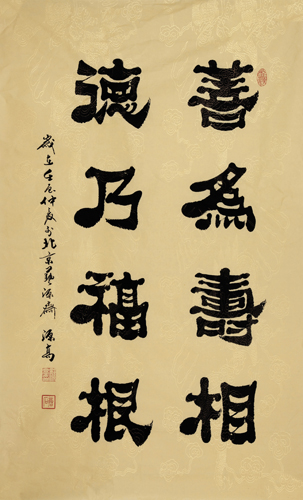 善為壽相
德乃福根
歲在壬辰仲夏於北京藝源齋 源高